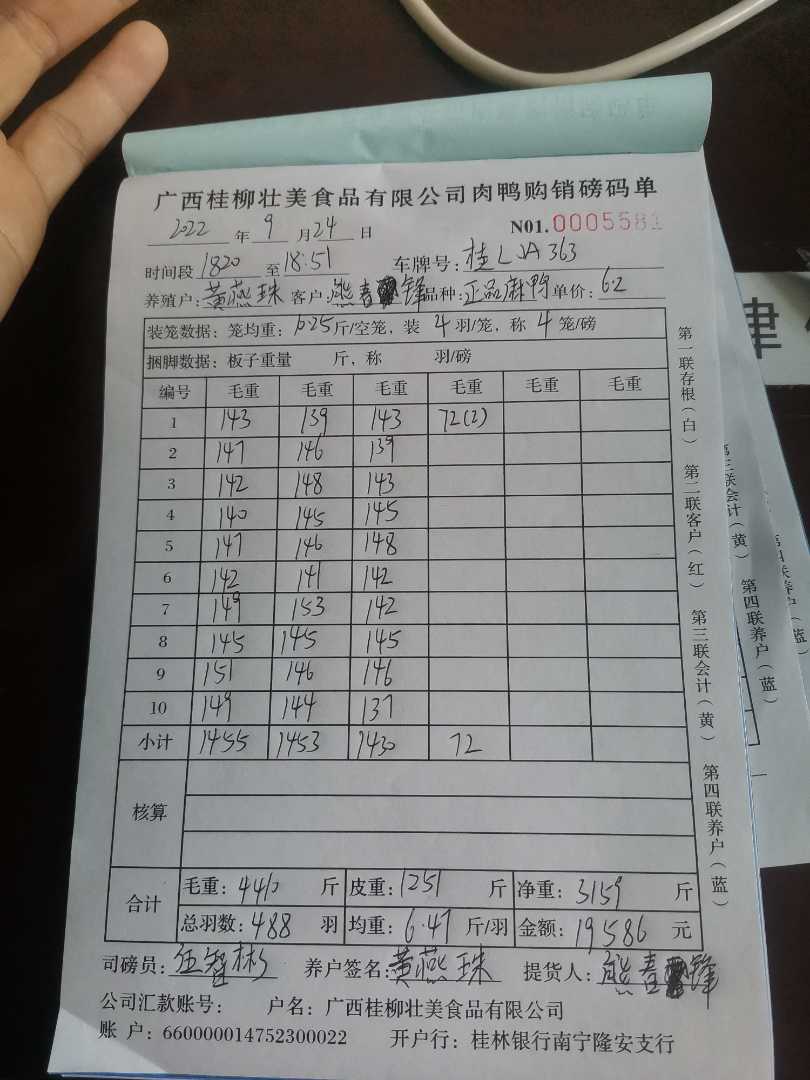 广西桂柳壮美食品有限公司肉鸭购销磅码单
2022 年 9 月 24 日 N01.0005581
时间段 1820 至 18:51 车牌号: 桂LJA363
养殖户: 黄燕珠 客户: 熊春锋 品种: 正品麻鸭 单价: 6.2
装笼数据: 笼均重: 斤/空笼, 装 4 羽/笼, 称 4 笼/磅
捆脚数据: 板子重量 斤, 称 羽/磅
编号 毛重 毛重 毛重 毛重 毛重 毛重
1 143 139 143 72(2)
2 147 146 139
3 142 148 143
4 140 145 145
5 147 146 148
6 142 141 142
7 149 153 142
8 145 145 145
9 151 146 146
10 149 144 137
小计 1455 1453 1430 72
核算
合计
毛重: 4410 斤 皮重: 1251 斤 净重: 3159 斤
总羽数: 488 羽 均重: 6.47 斤/羽 金额: 19586 元
司磅员: 伍智彬 养户签名: 黄燕珠 提货人: 熊春锋
公司汇款账号: 户名: 广西桂柳壮美食品有限公司
账 户: 660000014752300022 开户行: 桂林银行南宁隆安支行
第一联存根(白) 第二联客户(红) 第三联会计(黄) 第四联养户(蓝)
第三联会计(黄) 第四联养户(蓝)
第四联养户(蓝)
律